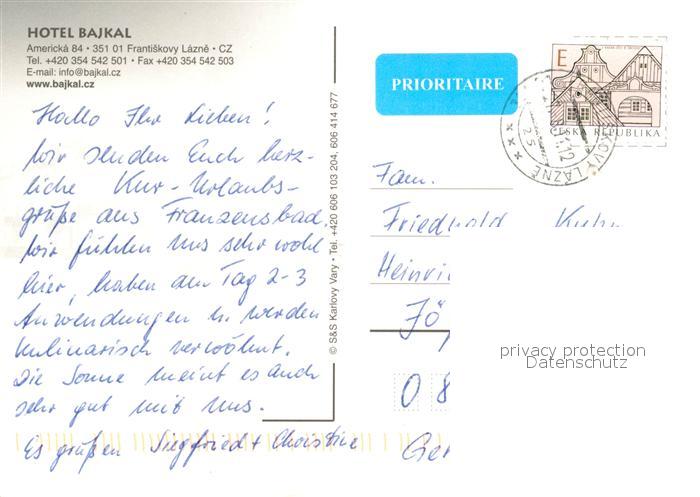 HOTEL BAJKAL
Americká 84 • 351 01 Františkovy Lázně • CZ
Tel. +420 354 542 501 • Fax +420 354 542 503
E-mail: info@bajkal.cz
www.bajkal.cz
Hallo Ihr Lieben!
Wir senden Euch herz-
liche Kur-Urlaubs-
grüße aus Franzensbad.
Wir fühlen uns sehr wohl
hier, haben am Tag 2-3
Anwendungen u. werden
kulinarisch verwöhnt.
Die Sonne meint es auch
sehr gut mit uns.
Es grüßen Siegfried + Christine
© S&S Karlovy Vary • Tel. +420 606 103 204, 606 414 677
PRIORITAIRE
E
ČESKÁ REPUBLIKA
KOVY LÁZNĚ
Fam.
Friedhold
Heinri
Jö
08
Ger
privacy protection
Datenschutz